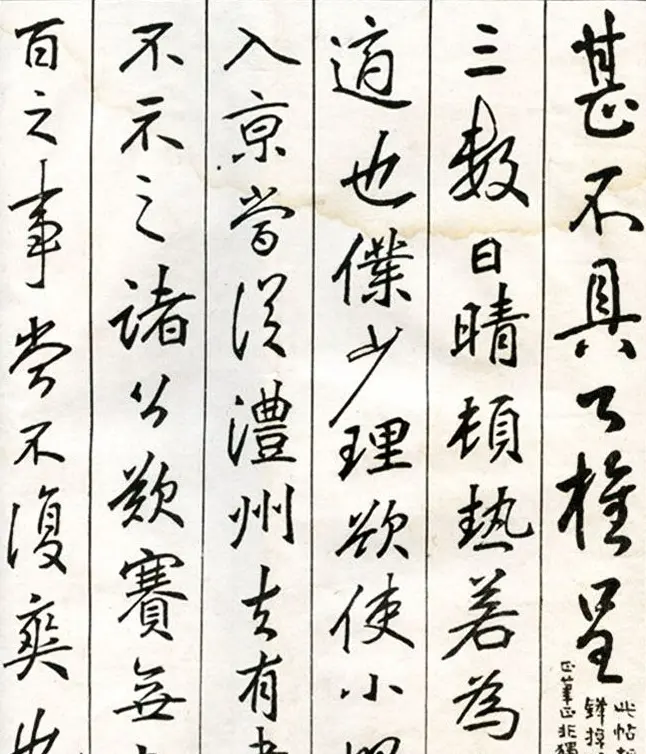 甚不具 公權呈
三數日晴頓熱若為
適也僕少理欲使小
入京嘗從澧州去有
不示之諸公欲賽無
百之事嘗不復爽也
此帖
正筆正非